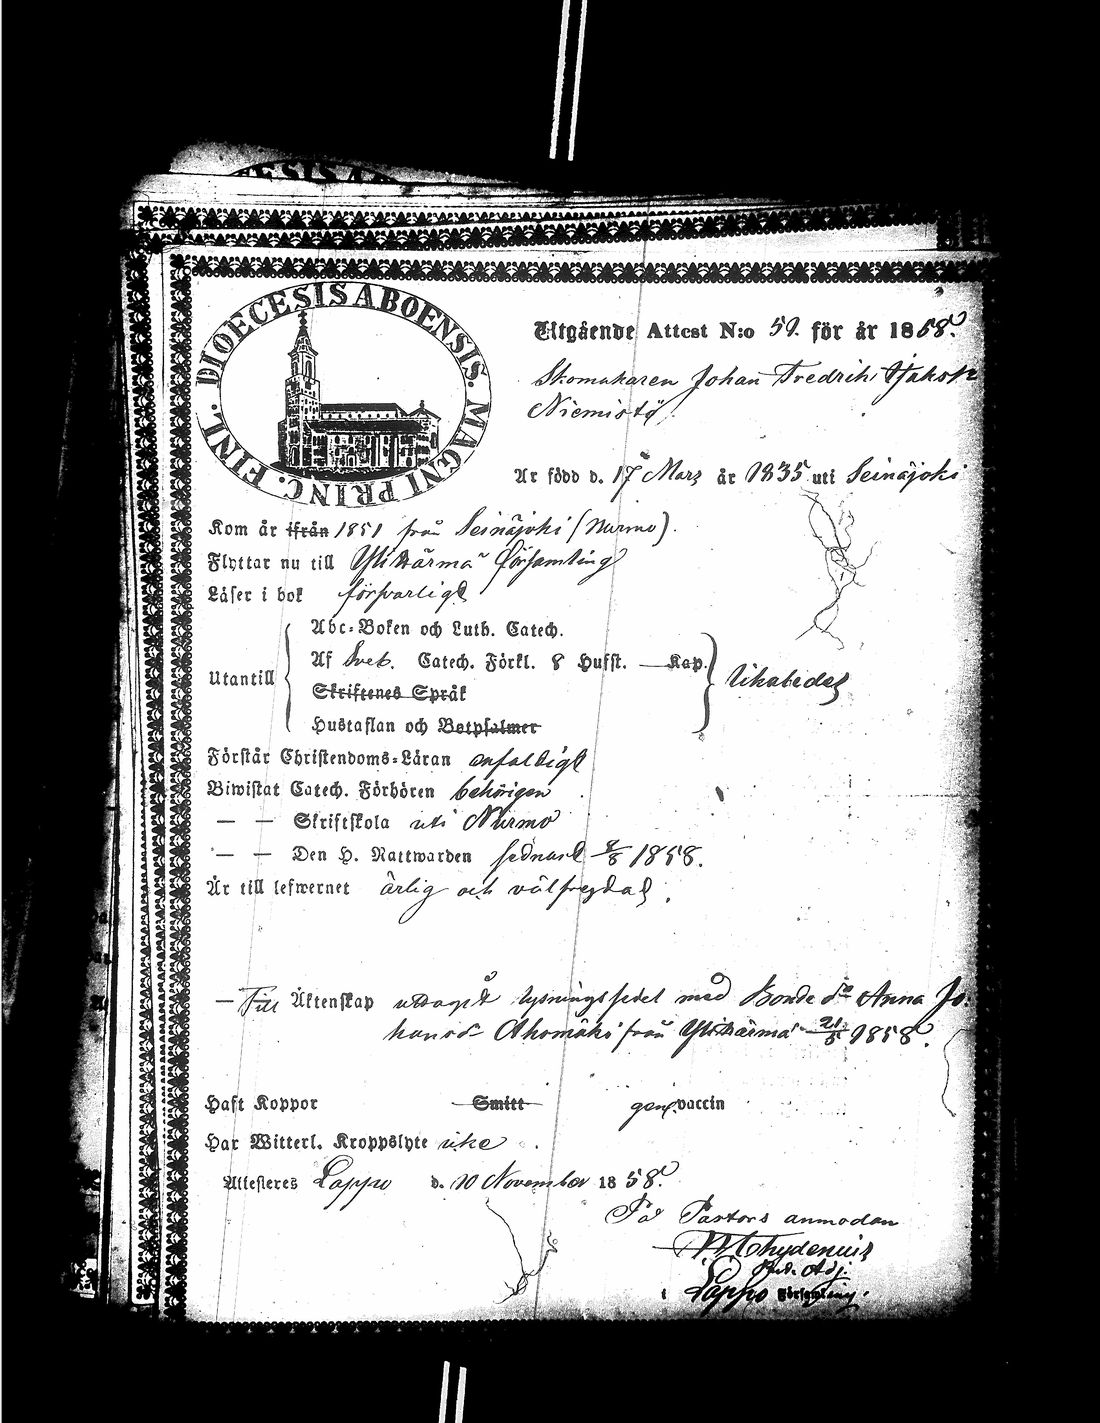 DIOECESIS ABOENSIS. MAGNI PRINC. FINL.
Utgående Attest N:o 59. för år 1858.
Skomakaren Johan Fredrik
Niemistö.
Är född d. 17 Mars år 1835 uti Seinäjoki
Kom år ifrån 1851 från Seinäjoki (Nurmo).
Flyttar nu till Ylikärmä församling
Läser i bok försvarligt
Abc-Boken och Luth. Catech.
Af Sveb. Catech. Förkl. 8 Hufst. — Kap.
Utantill
Skriftenes Språk
Hustaflan och Botpsalmer
Förstår Christendoms-Läran enfaldigt
Biwistat Catech. Förhören behörigen
— — Skriftskola uti Nurmo
— — Den H. Nattwarden sednast 1858.
Är till lefwernet ärlig och välfrejdad.
— Till Äktenskap uttagit lysningssedel med Bonde d:r Anna Jo-
hansd:r Ahomäki från Ylikärmä 21/5 1858.
Haft Koppor Smitt gen. vaccin
Har Witterl. Kroppslyte icke.
Attesteres Lappo d. 10 November 1858.
På Pastors anmodan
Chydenius
Adj.
i Lappo Församling.